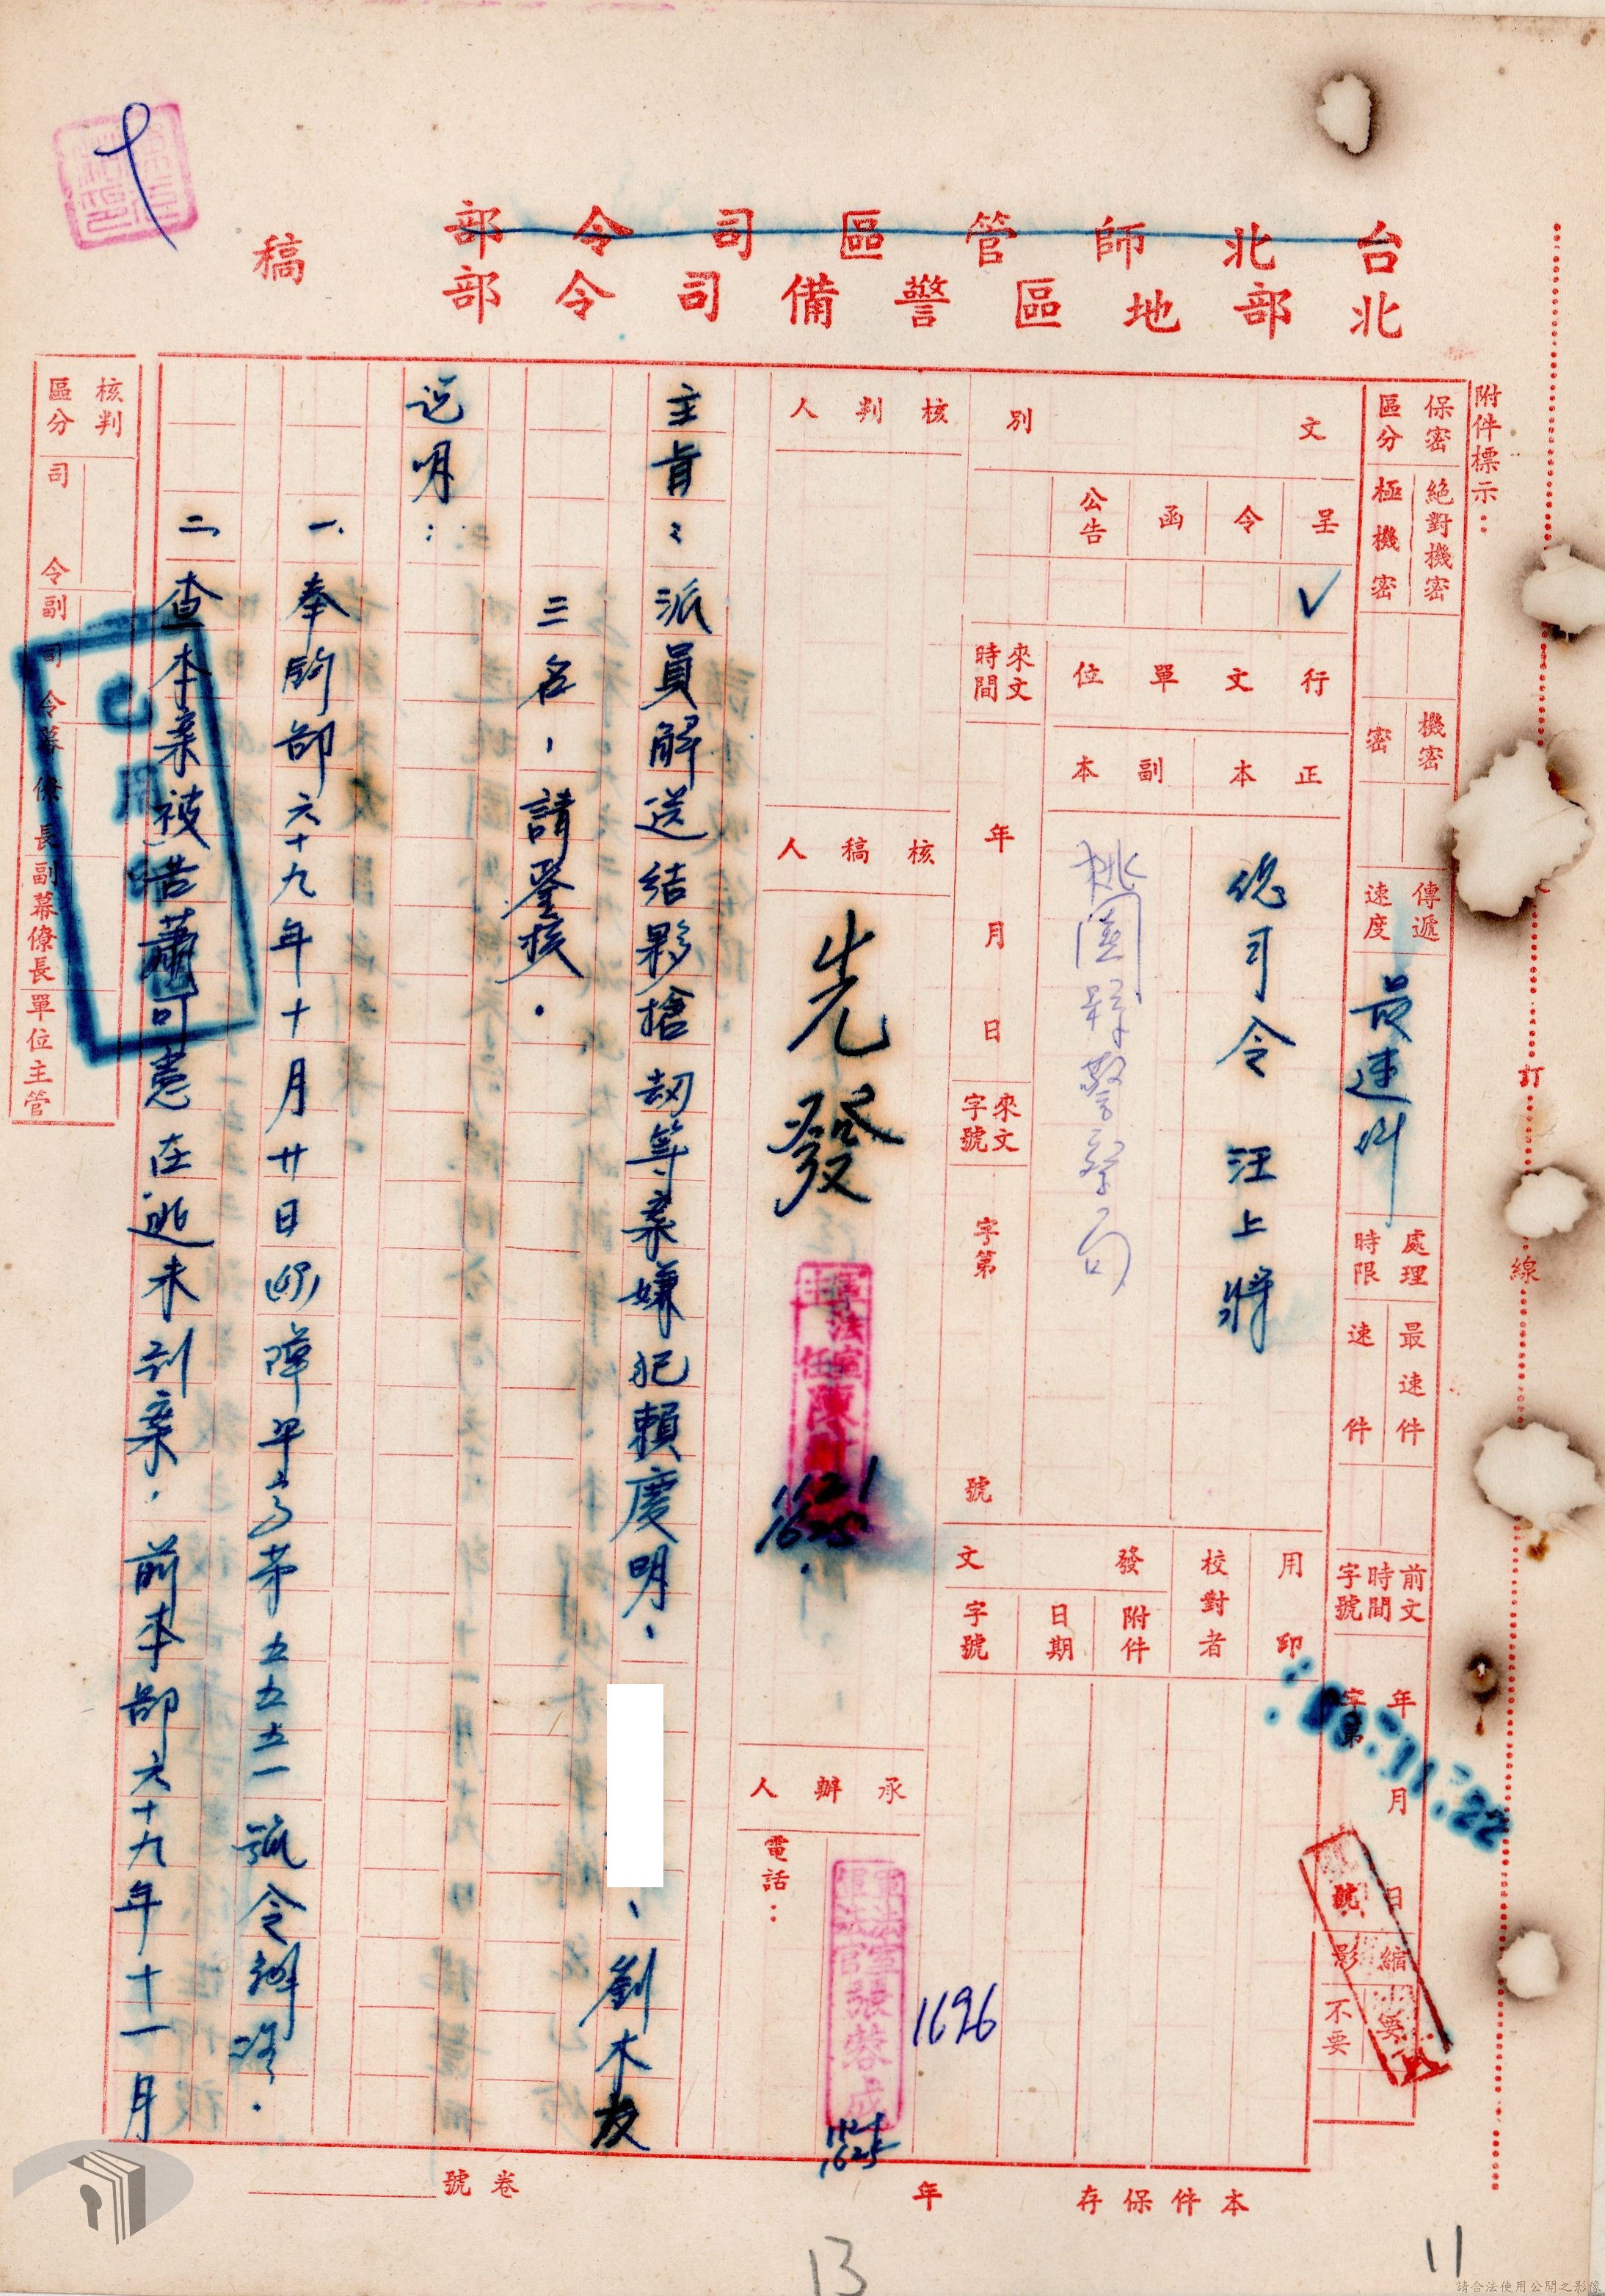 台北師管區司令部
北部地區警備司令部
稿
附件標示：
保密區分
絕對機密
極機密
機密
密
傳遞速度
最速件
處理時限
最速件
速件
前文時間字號
年月日
字第號
69.11.22
縮影
要
不要
訂
線
文別
呈
令
函
公告
✓
行文單位
正本
副本
總司令 汪上將
桃園縣警察局
來文時間
年月日
來文字號
字第號
用印
校對者
發文
附件
日期
字號
核判人
核稿人
先發
1121
1625
承辦人
電話：
張蓉成
1696
1121
1625
主旨：派員解送結夥搶刼等案嫌犯賴慶明、
、劉木友
三名，請鑒核。
說明：
一、奉鈞部六十九年十月廿日(69)障平字第五五五一號令辦理。
二、查本案被告蕭可憲在逃未到案，前本部六十九年十一月
已用印
核判區分
司令
副司令
幕僚長
副幕僚長
單位主管
本件保存
年
卷號
13
11
請合法使用公開之影像